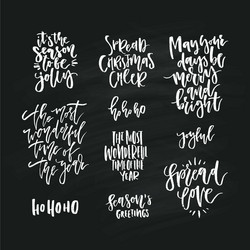 it's the
season
to be
jolly
SPREAD
CHRISTMAS
CHEER
May your
days be
merry
and
bright
the most
wonderful
time of
the year
ho ho ho
THE MOST
WONDERFUL
TIME OF THE
YEAR
joyful
HO HO HO
Season's
GREETINGS
Spread
love